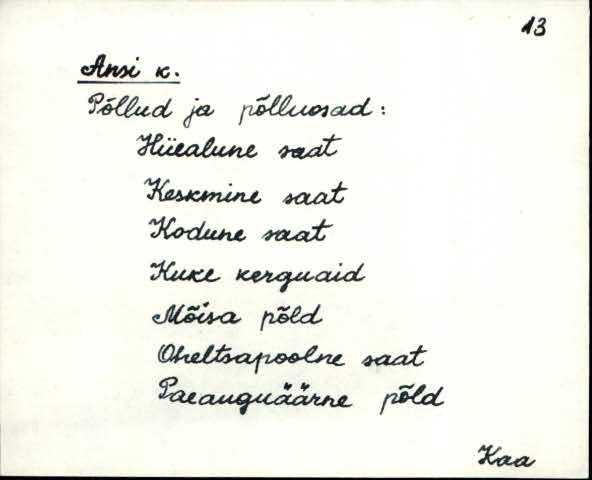 13
Ansi k.
Põllud ja põlluosad:
Hüealune saat
Keskmine saat
Kodune saat
Kuke kerguaid
Mõisa põld
Oheltsapoolne saat
Paeauguäärne põld
Kaa